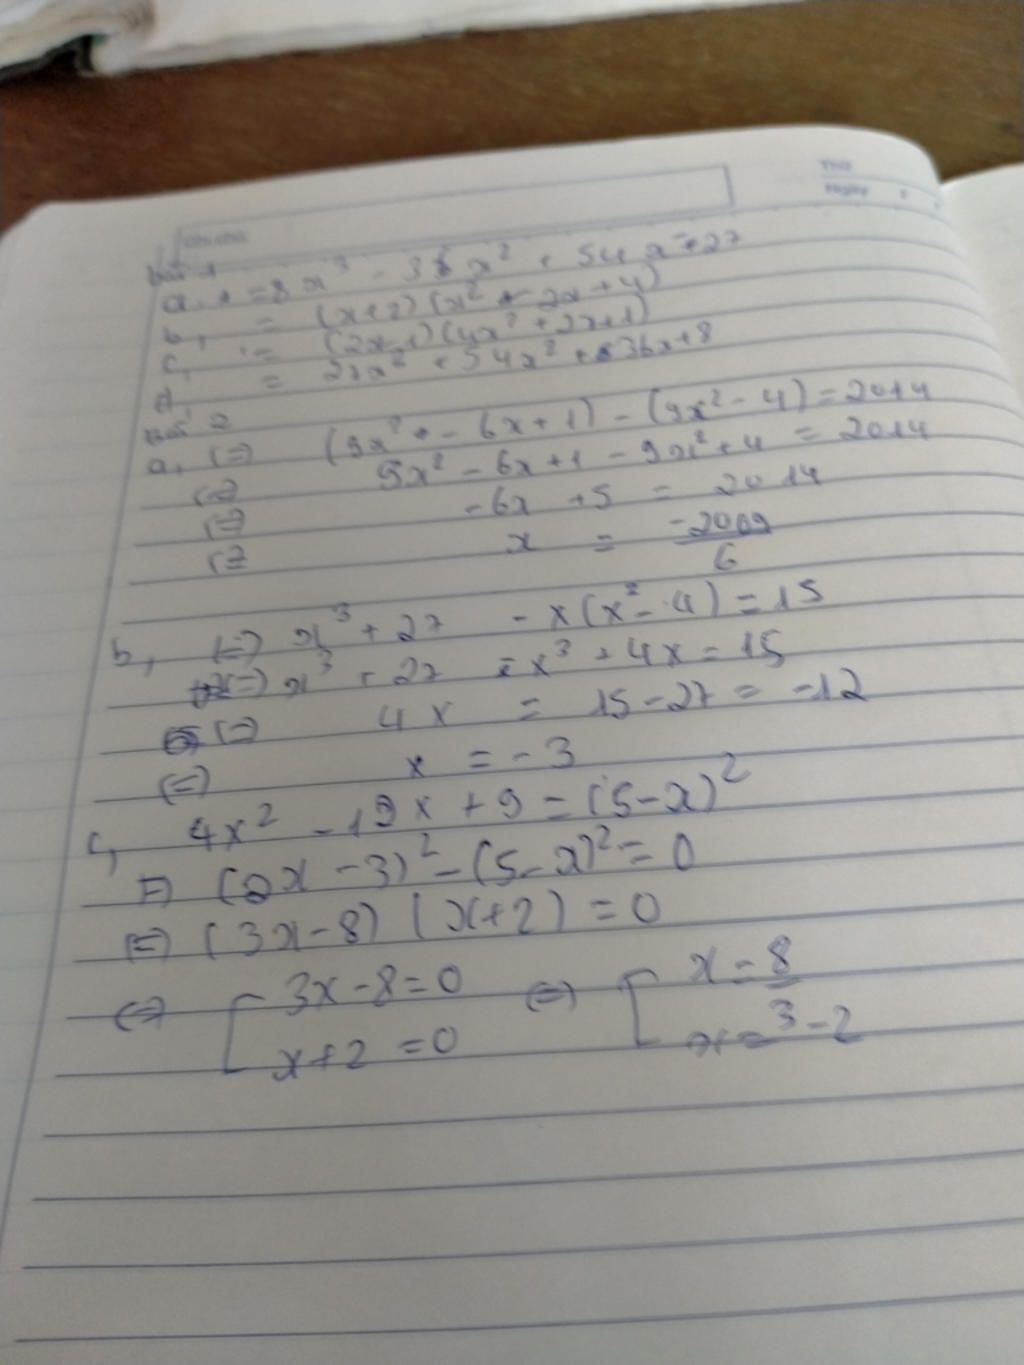 Thứ
Ngày
Bài 1
a, = 8x³ - 36x² + 54x - 27
b, = (x+2)(x² - 2x + 4)
c, = (2x-1)(4x² + 2x + 1)
d, = 27x² + 54x² + 36x + 8
Bài 2
a, (=) (9x² - 6x + 1) - (9x² - 4) = 2014
(=) 9x² - 6x + 1 - 9x² + 4 = 2014
(=) -6x + 5 = 2014
(= x = -2009/6
b, (=) x³ + 27 - x(x² - 4) = 15
(=) x³ + 27 - x³ + 4x = 15
(=) 4x = 15 - 27 = -12
(=) x = -3
c, 4x² - 12x + 9 = (5-x)²
(=) (2x - 3)² - (5-x)² = 0
(=) (3x-8) (x+2) = 0
(=) [ 3x-8=0 (=) [ x = 8/3
x+2 =0 x = -2